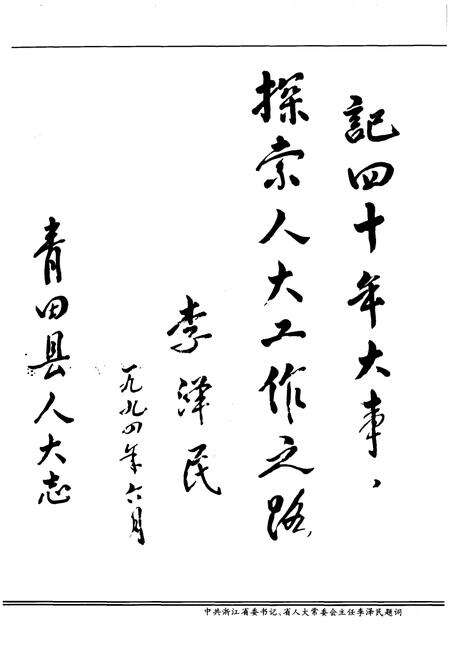 記四十年大事，
探索人大工作之路
李泽民
一九九四年六月
青田县人大志
中共浙江省委书记、省人大常委会主任李泽民题词